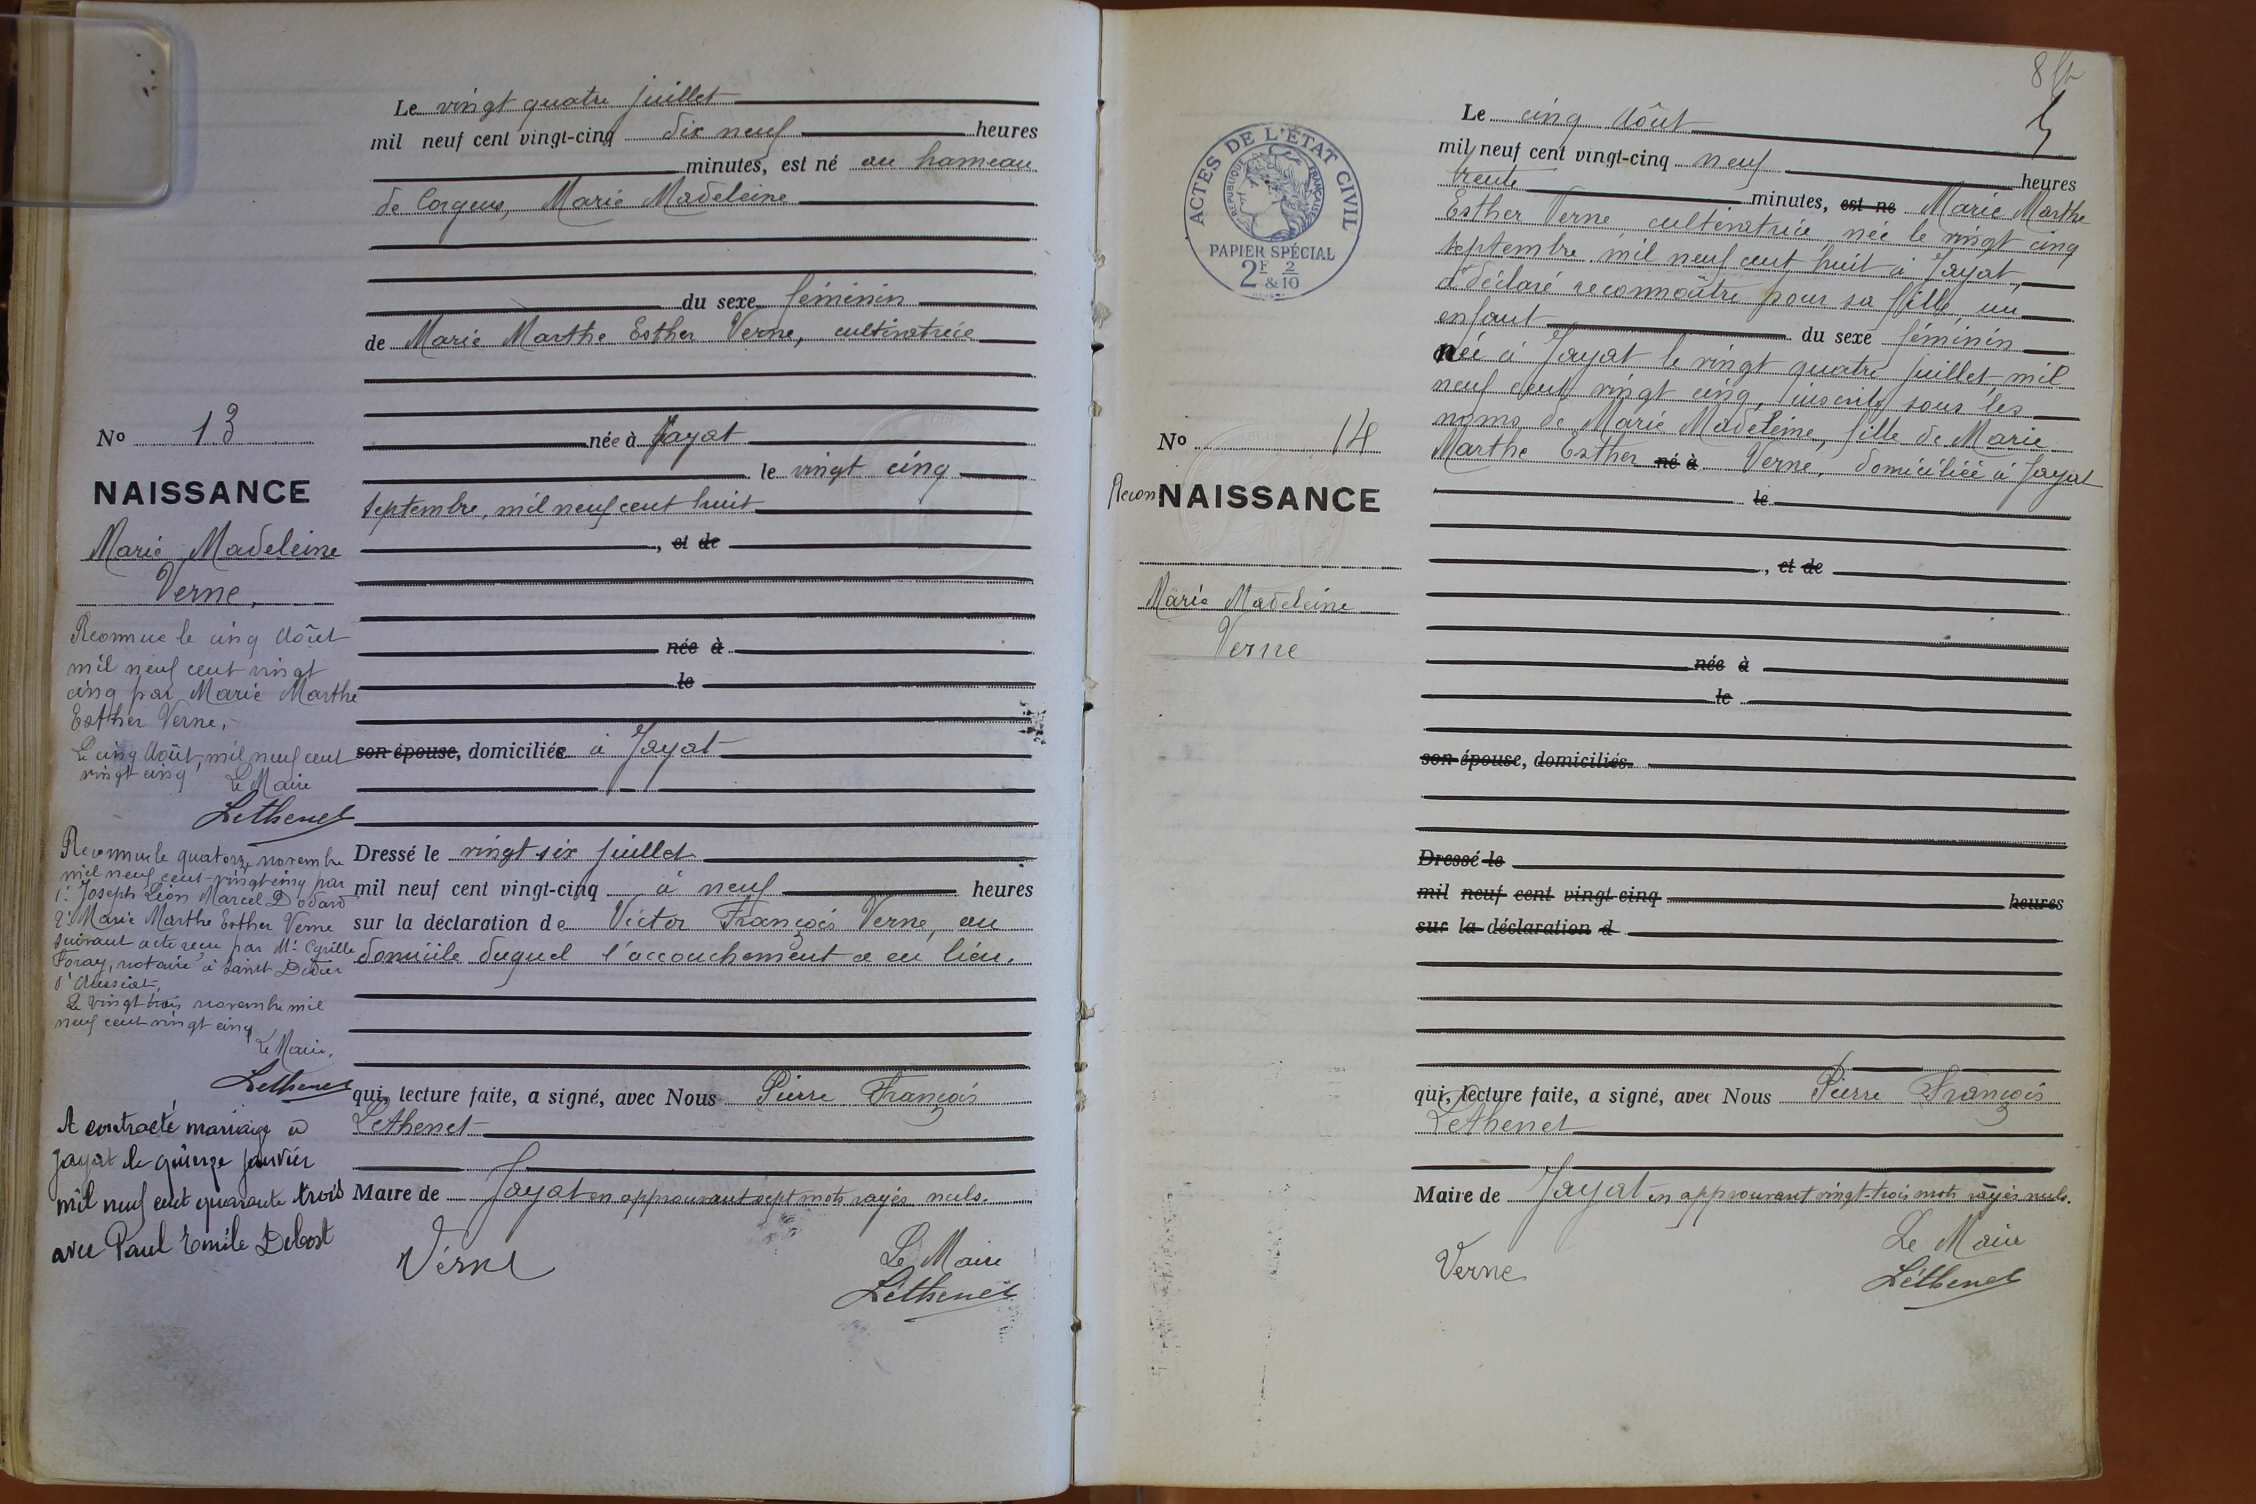 Le vingt quatre juillet
mil neuf cent vingt-cinq dix neuf heures
minutes, est né au hameau
de Corgeus, Marie Madeleine
du sexe féminin
de Marie Marthe Esther Verne, cultivatrice
née à Jayat
le vingt cinq
septembre, mil neuf cent huit
, et de
née à
le
son épouse, domiciliée à Jayat
Dressé le vingt six juillet
mil neuf cent vingt-cinq à neuf heures
sur la déclaration de Victor François Verne, au
domicile duquel l'accouchement a eu lieu.
qui, lecture faite, a signé, avec Nous Pierre François
Lethenet
Maire de Jayat en approuvant sept mots rayés nuls.
Verne
Le Maire
Lethenet
No 13
NAISSANCE
Marie Madeleine
Verne,
Reconnue le cinq Août
mil neuf cent vingt
cinq par Marie Marthe
Esther Verne,
Le cinq Août, mil neuf cent
vingt cinq
Le Maire
Lethenet
Reconnue le quatorze novembre
mil neuf cent vingt cinq par
1° Joseph Léon Marcel Dodard
2° Marie Marthe Esther Verne
suivant acte reçu par Me Cyrille
Foray, notaire à Saint Didier
d'Aussiat,
Le vingt trois novembre mil
neuf cent vingt cinq
Le Maire,
Lethenet
A contracté mariage à
Jayat le quinze janvier
mil neuf cent quarante trois
avec Paul Emile Debost
8
ACTES DE L'ÉTAT CIVIL
RÉPUBLIQUE FRANÇAISE
PAPIER SPÉCIAL
2F 2/10
&
Le cinq Août
mil neuf cent vingt-cinq neuf heures
trente minutes, est né Marie Marthe
Esther Verne cultivatrice née le vingt cinq
septembre mil neuf cent huit à Jayat,
a déclaré reconnaître pour sa fille, un
enfant du sexe féminin
née à Jayat le vingt quatre juillet mil
neuf cent vingt cinq, inscrite sous les
noms de Marie Madeleine, fille de Marie
Marthe Esther né à Verne, domiciliée à Jayat
le
, et de
née à
le
son épouse, domiciliés
Dressé le
mil neuf cent vingt-cinq heures
sur la déclaration d
qui, lecture faite, a signé, avec Nous Pierre François
Lethenet
Maire de Jayat en approuvant vingt-trois mots rayés nuls.
Verne
Le Maire
Lethenet
No 14
Recon NAISSANCE
Marie Madeleine
Verne